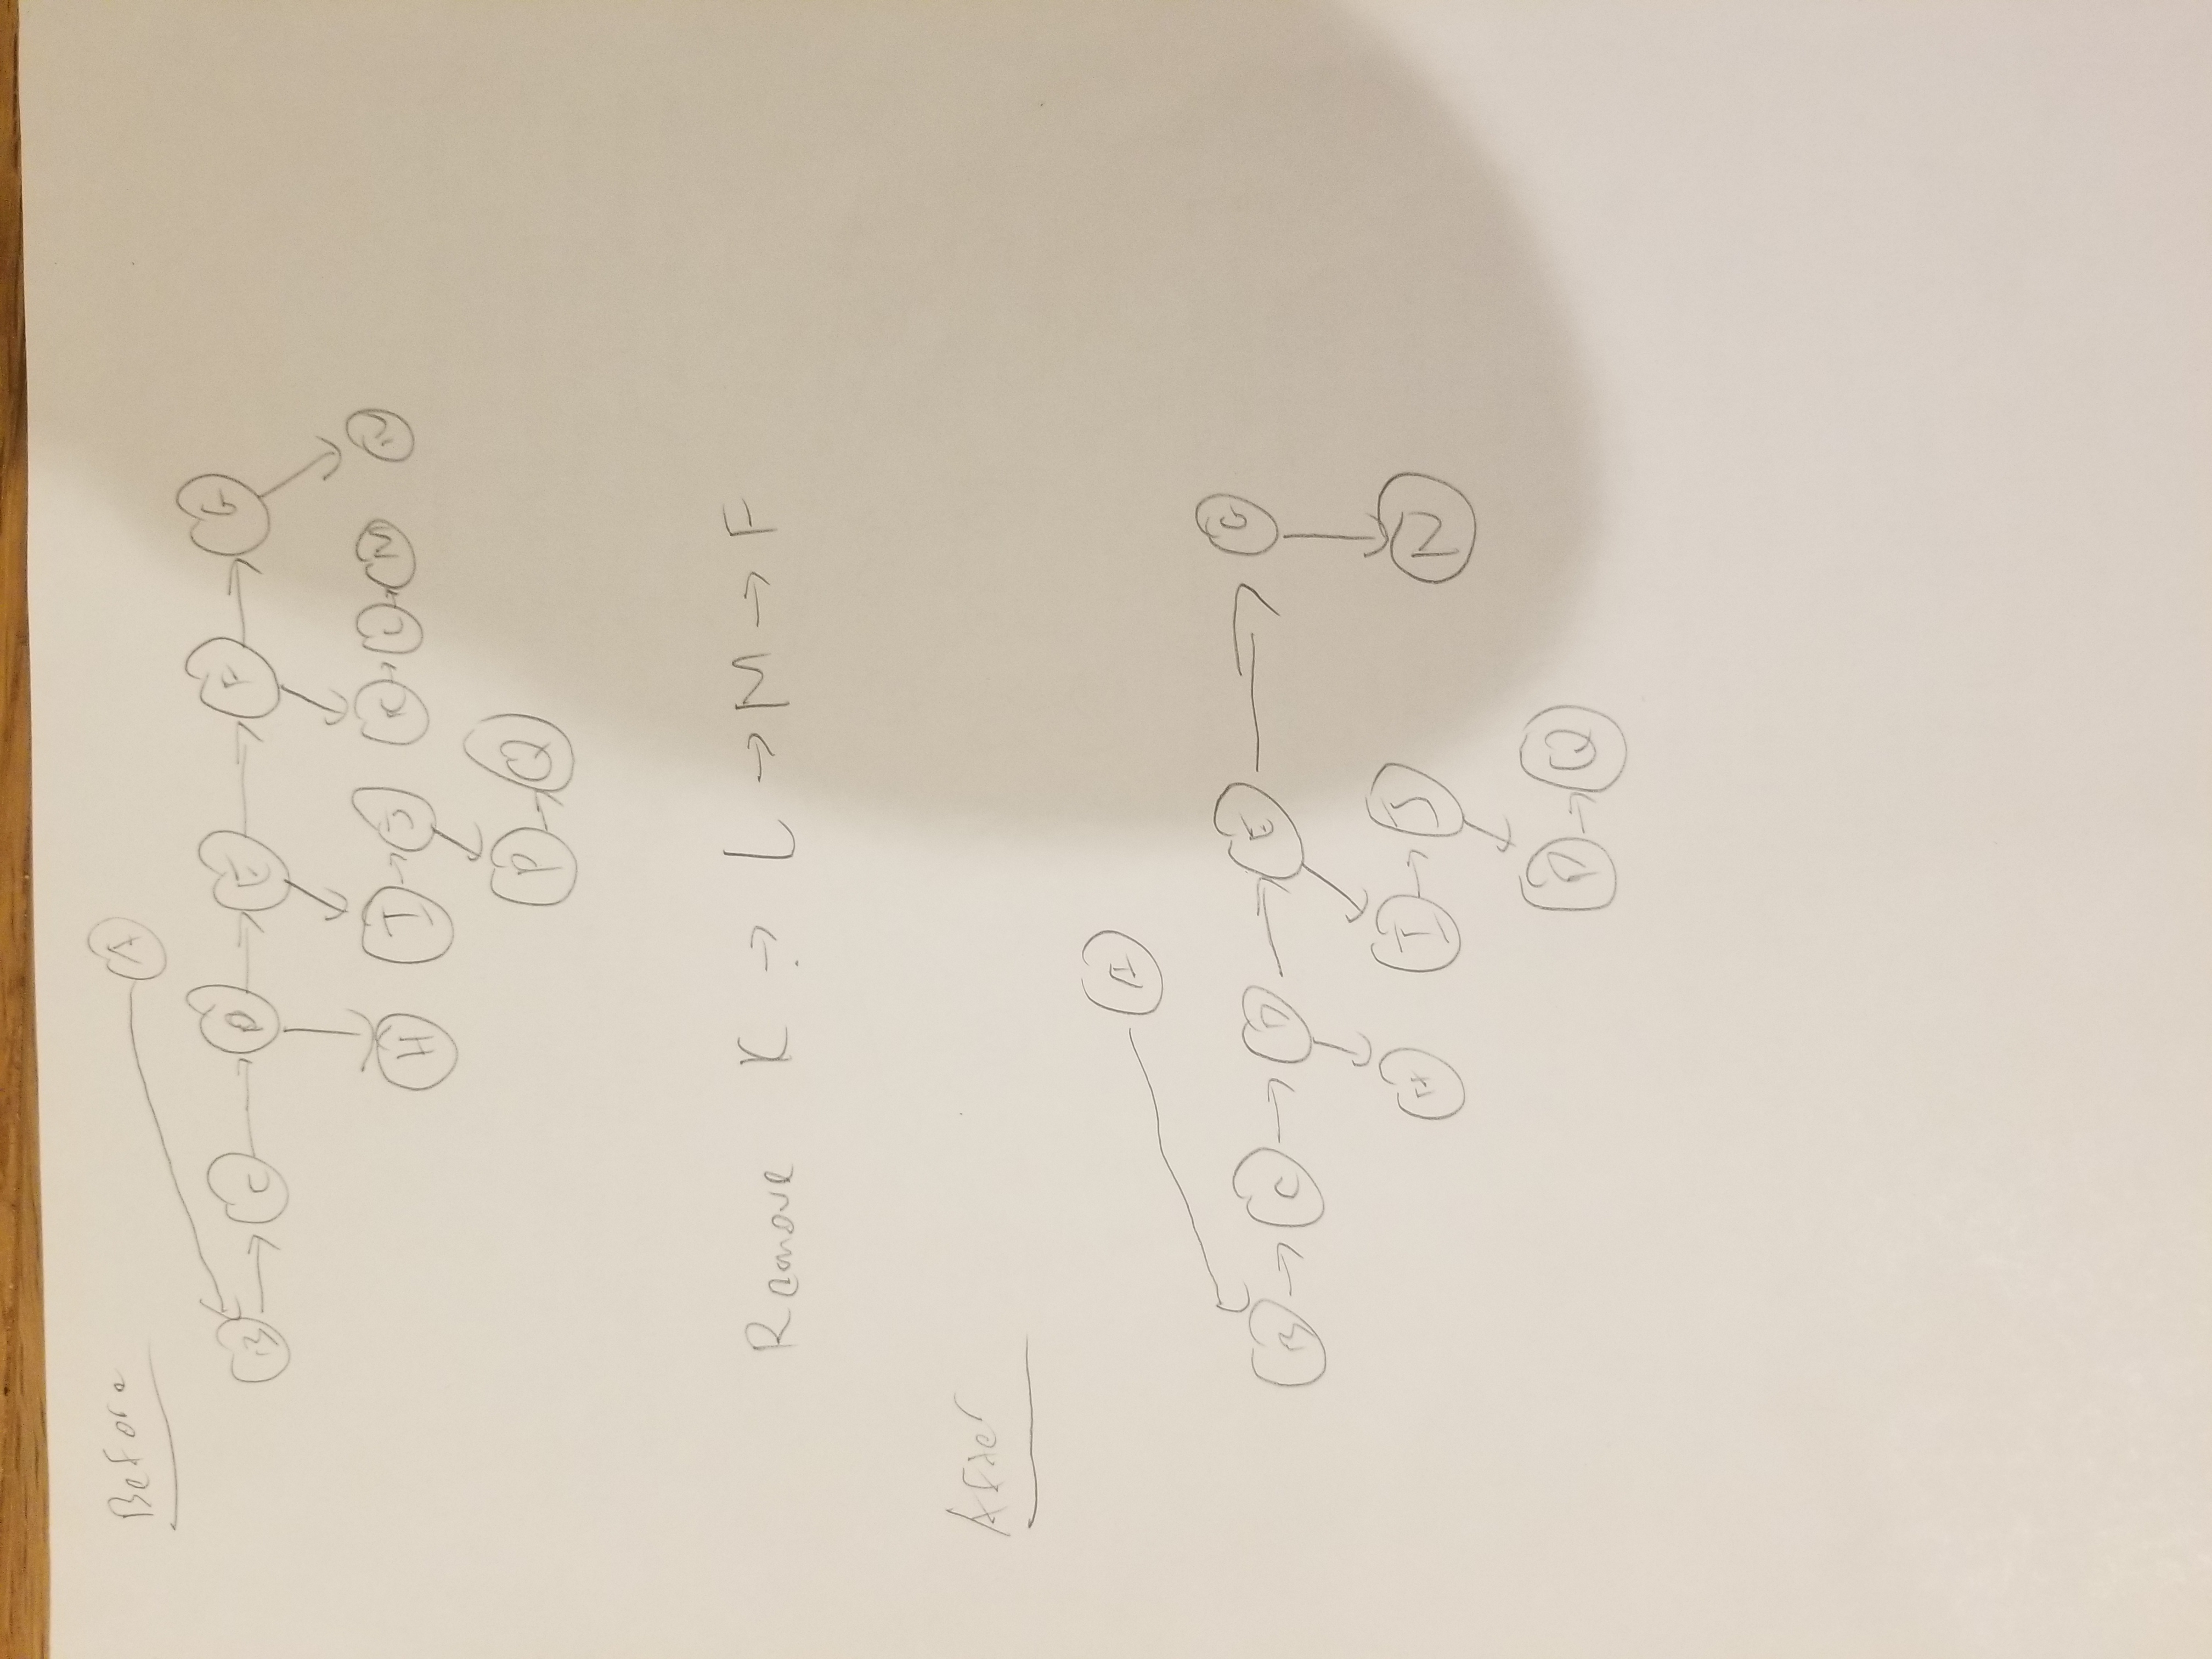 Before
A
B → C → D → E → F → G
H I → J K → L → M N
P → Q
Remove K → L → M → F
After
A
B → C → D → E → G
H I → J N
P → Q